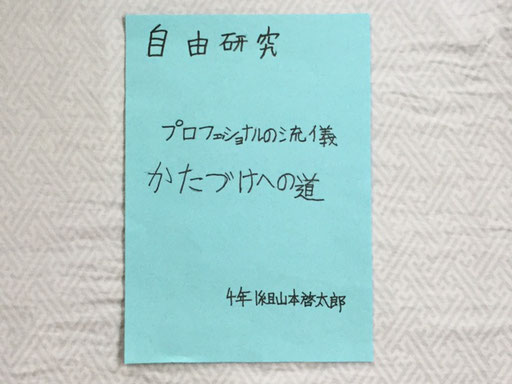 自由研究
プロフェッショナルの流儀
かたづけへの道
4年1組山本啓太郎